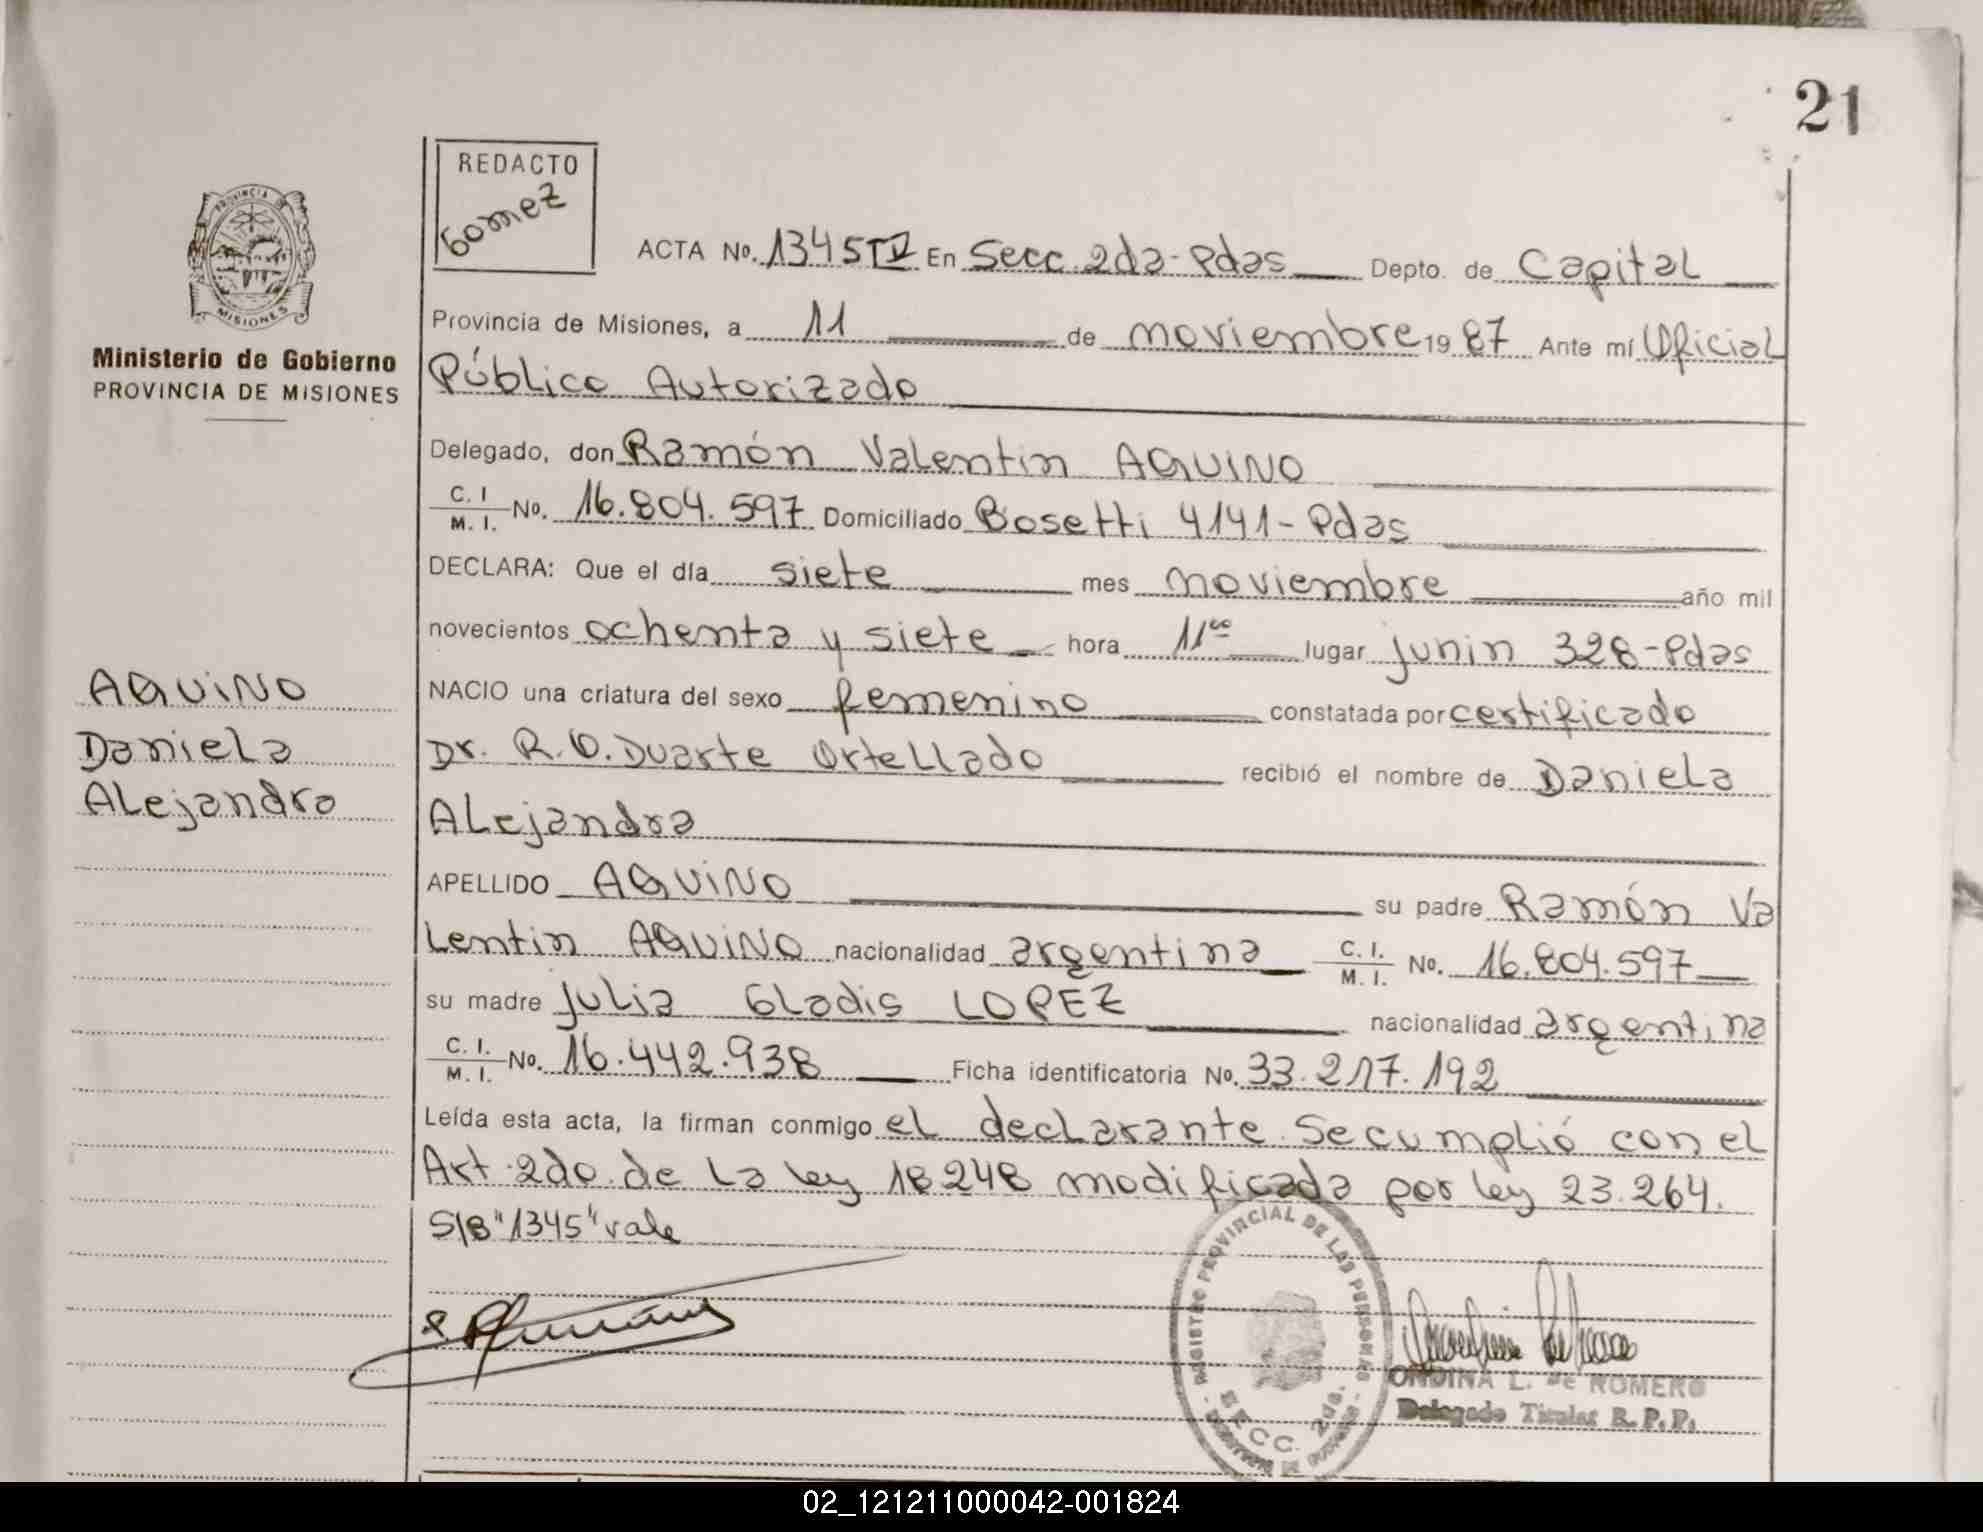 21
REDACTO
Gomez
ACTA No. 1345 IV En Secc. 2da - Pdas Depto. de Capital
PROVINCIA DE
MISIONES
Ministerio de Gobierno
PROVINCIA DE MISIONES
Provincia de Misiones, a 11 de noviembre 19 87 Ante mí Oficial
Público Autorizado
Delegado, don Ramón Valentin AQUINO
C. I / M. I. No. 16.804.597 Domiciliado Bosetti 4141 - Pdas
DECLARA: Que el día siete mes noviembre año mil
novecientos ochenta y siete hora 11°° lugar junin 328 - Pdas
NACIO una criatura del sexo femenino constatada por certificado
Dr. R.O. Duarte Ortellado recibió el nombre de Daniela
Alejandra
AQUINO
Daniela
Alejandra
APELLIDO AQUINO su padre Ramón Va
lentin AQUINO nacionalidad argentina C. I. / M. I. No. 16.804.597
su madre Julia Gladis LOPEZ nacionalidad argentina
C. I. / M. I. No. 16.442.938 Ficha identificatoria No. 33.217.192
Leída esta acta, la firman conmigo el declarante. Se cumplió con el
Art. 2do. de la ley 18248 modificada por ley 23.264.
S/B "1345" vale
REGISTRO PROVINCIAL DE LAS PERSONAS
SECC. 2da.
ONDINA L. de ROMERO
Delegado Titular R. P. P.
02_121211000042-001824